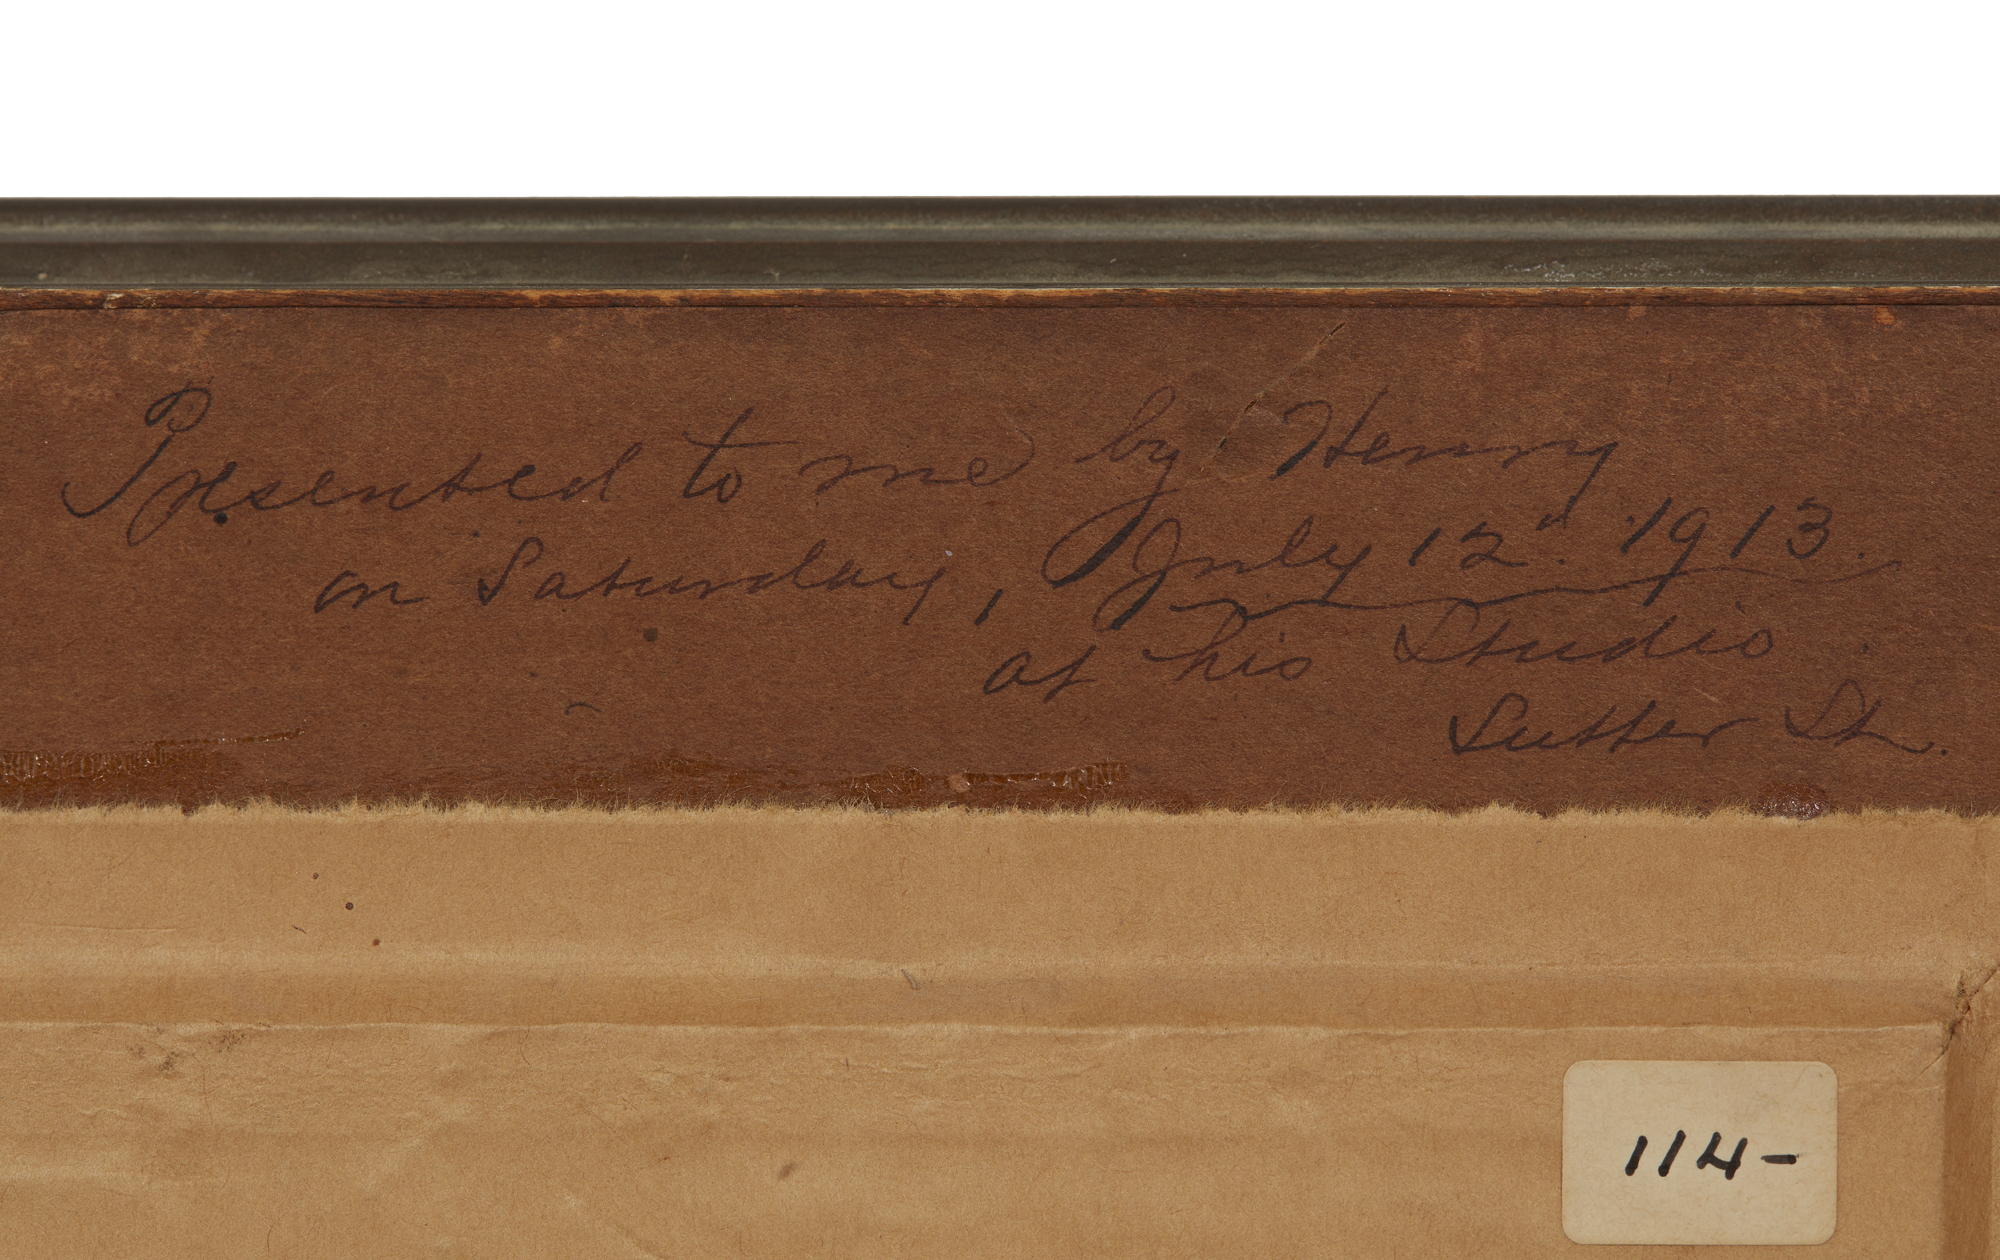 Presented to me by Henry
on Saturday, July 12" 1913.
at his Studio.
Sutter St.
114-